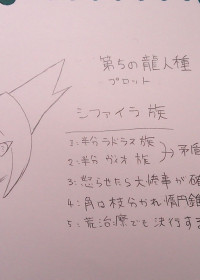 第5の龍人種
プロット
シファイラ族
1:半分ラドラス族
2:半分 ヴオ 族
→矛盾
3:怒らせたら大惨事が確
4:角は枝分かれ 楕円錐
5:荒治療でも決行する